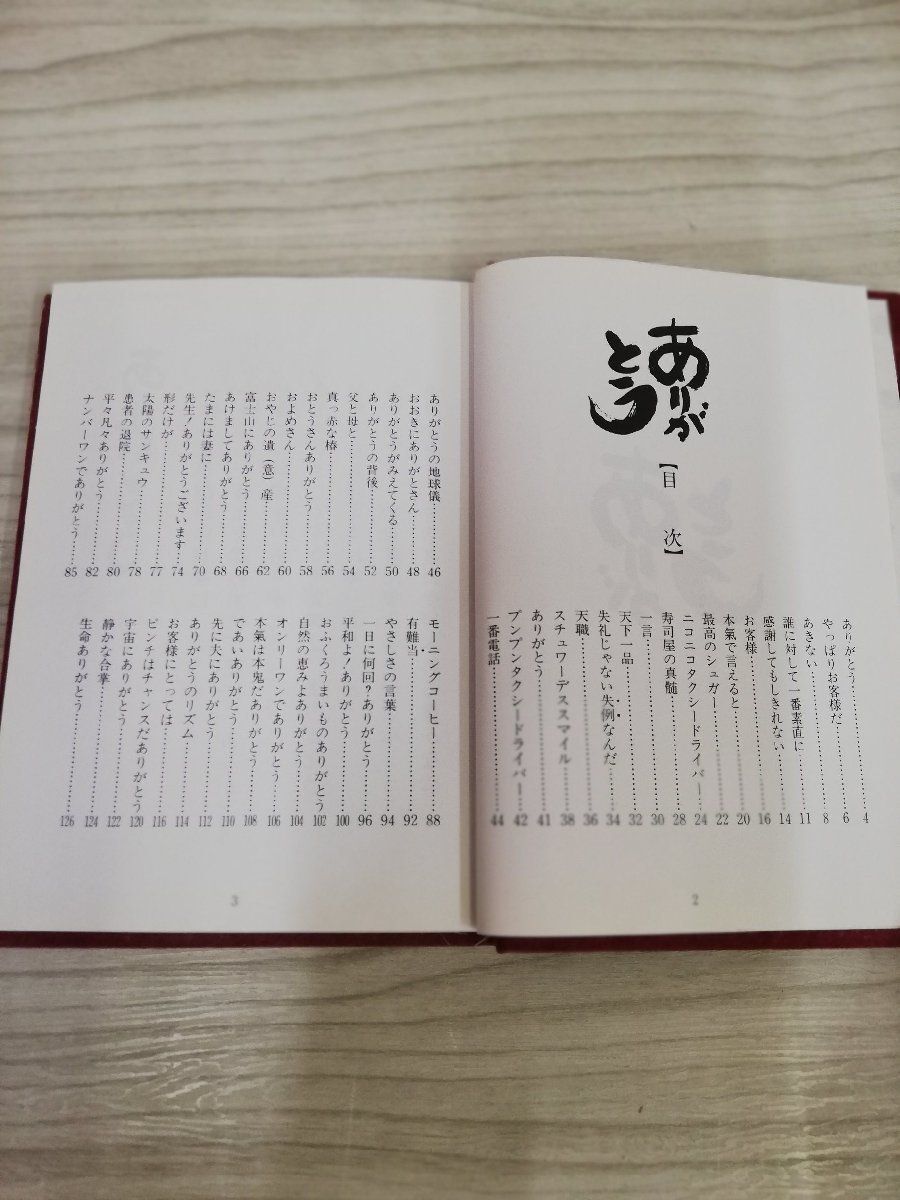 ありが
とう
【目次】
ありがとう……4
やっぱりお客様だ……6
あきない……8
誰に対して一番素直に……11
感謝してもしきれない……14
お客様……16
本氣で言えると……20
最高のシュガー……22
ニコニコタクシードライバー……24
寿司屋の真髄……28
一言……30
天下一品……32
失礼じゃない失例なんだ……34
天職……36
スチュワーデススマイル……38
ありがとう……41
プンプンタクシードライバー……42
一番電話……44
2
ありがとうの地球儀……46
おおきにありがとさん……48
ありがとうがみえてくる……50
ありがとうの背後……52
父と母と……54
真っ赤な椿……56
おとうさんありがとう……58
およめさん……60
おやじの遺(意)産……62
富士山にありがとう……66
あけましてありがとう……68
たまには妻に……70
先生!ありがとうございます……74
形だけが……77
太陽のサンキュウ……78
患者の退院……80
平々凡々ありがとう……82
ナンバーワンでありがとう……85
モーニングコーヒー……88
有難当……92
やさしさの言葉……94
一日に何回?ありがとう……96
平和よ!ありがとう……100
おふくろうまいものありがとう……102
自然の恵みよありがとう……104
オンリーワンでありがとう……106
本氣は本鬼だありがとう……108
であいありがとう……110
先に夫にありがとう……112
ありがとうのリズム……114
お客様にとっては……116
ピンチはチャンスだありがとう……120
宇宙にありがとう……122
静かな合掌……124
生命ありがとう……126
3